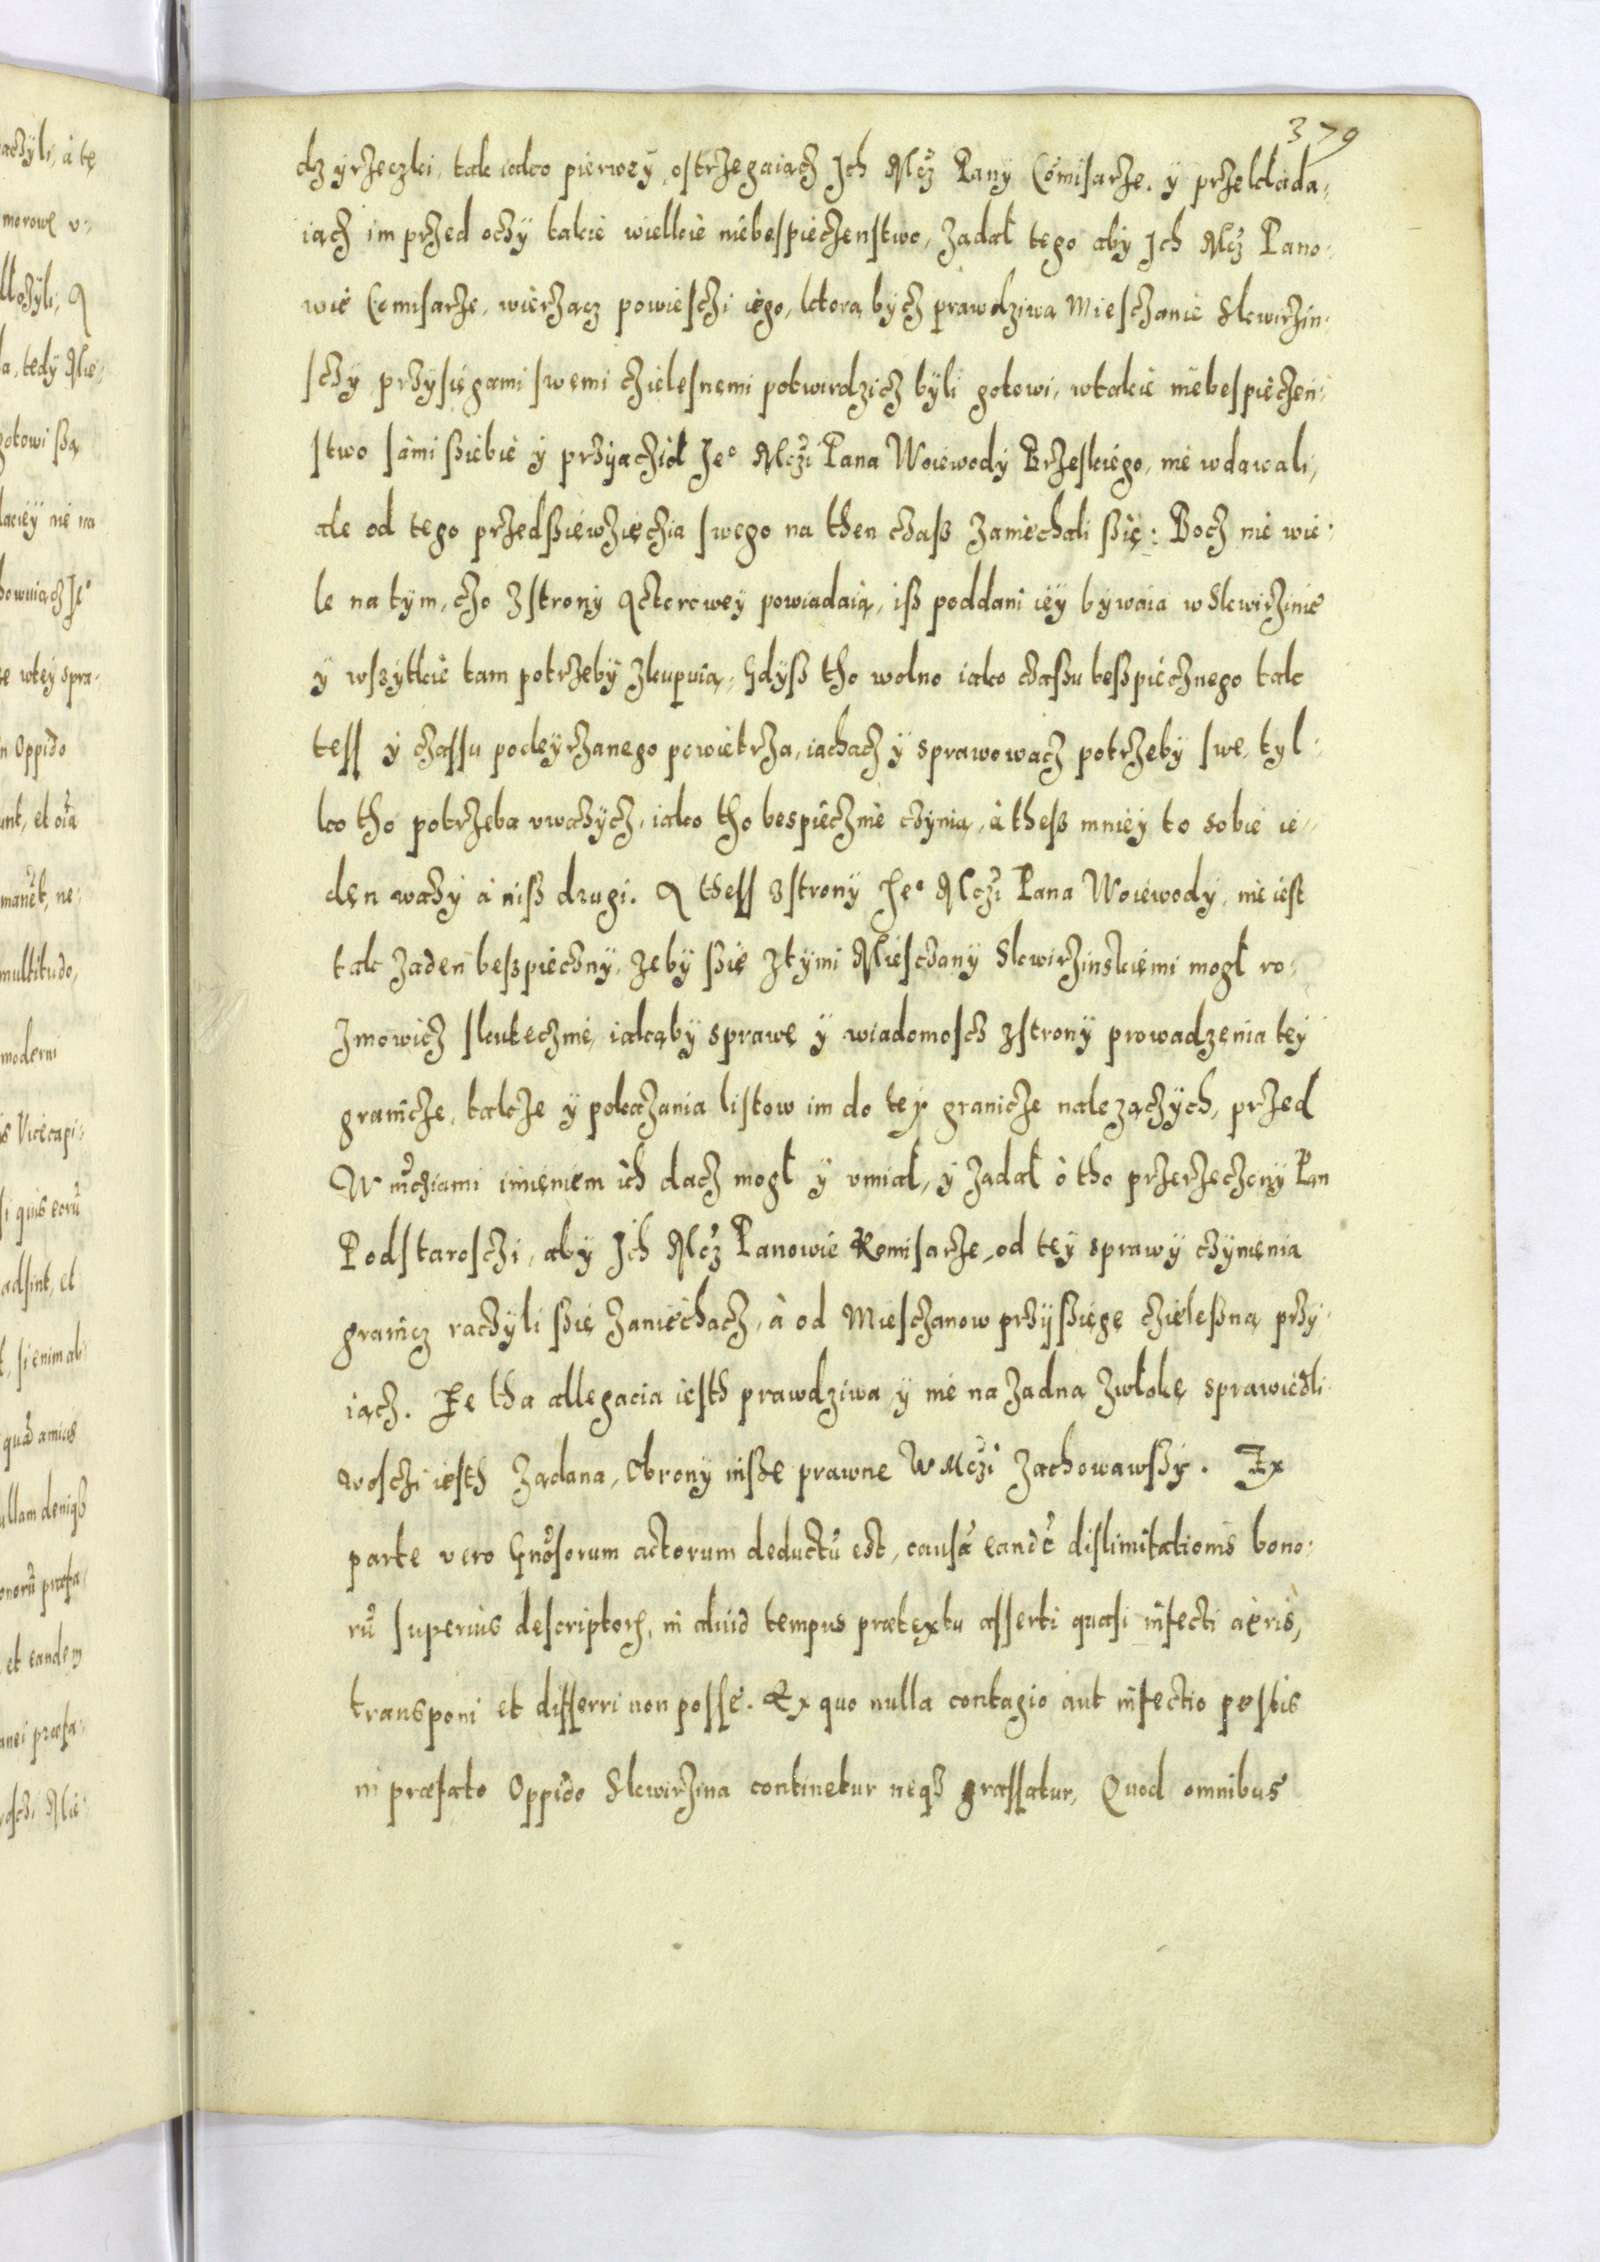 379
dz yrzeczki, tak iako pierwey, ostrzegaiącz Ich Mcz Pany Comisarze. y przekłada,
iącz im przed oczy takie wielkie niebespieczenstwo, Zadał tego aby Ich Mcz Pano,
wie Comisarze, wierzącz powiesczi iego, ktorą bycz prawdziwą Miesczanie Skwirzin,
sczy przysięgami swemi czielesnemi potwirdzicz byli gotowi, wtakie niebespieczen,
stwo sami siebie y przyacziół Jeo Mczi Pana Woiewody Brzeskiego, nie wdawali,
ale od tego przedsiewzięczia swego na then czaß zaniechali ßię: Bocz nie wie,
le na tym, czo z strony Actorowey powiadaią, iß poddani iey bywaia w Skwirzinie
y wszytkie tam potrzeby zkupuią, Gdyß tho wolno iako czaßu beßpiecznego tak
tess y czassu podeyrzanego powietrza, iachacz y sprawowacz potrzeby swe, tyl,
ko tho potrzeba uwazycz, iako tho bespiecznie czynią, a theß mniey to sobie ie,
den wazy a niß drugi. A thess z strony Jeo Mczi Pana Woiewody, nie iest
tak zaden beßpieczny, zeby ßię z tymi Miesczany Skwirzinskiemi mogł ro,
zmowicz skutecznie, iakąby sprawę y wiadomoscz z strony prowadzenia tey
granicze, takze y pokazania listow im do tey granicze nalezączych, przed
W mcziami imieniem ich dacz mogł y umiał, y Zadał o tho przerzeczony Pan
Podstarosczi, aby Ich Mcz Panowie Komisarze, od tey sprawy czynienia
granicz raczyli ßię Zaniechacz, a od Miesczanow przyßięgę czieleßną przy,
iącz. Ze tha allegacia iesth prawdziwa y nie na zadną zwłokę sprawiedli,
wosczi iesth Zadana, Obrony inße prawne W Mczi Zachowawßy. Ex
parte vero Gnosorum actorum deductū est, causā eandē dislimitationis bono,
rū superius descriptorū, in aliud tempus prætextu asserti quasi infecti aeris,
transponi et differri non posse. Ex quo nulla contagio aut infectio pestis
in præfato Oppido Skwirzina continetur neqз grassatur, Quod omnibus